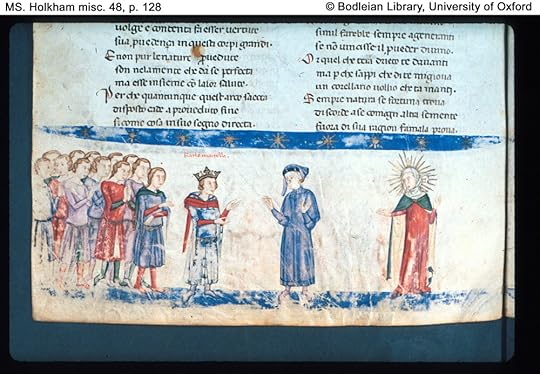 MS. Holkham misc. 48, p. 128
© Bodleian Library, University of Oxford
uolge e contenta fa esser uertute
sua puedenza in questi corpi grandi.
E non pur le nature puedute
son nela mente che da se perfecta
ma esse insieme cō la lor salute.
Per che quantunque quest arco saecta
disposto cade a proueduto fine
si come cosa in suo segno directa.
simil farebbe sempre ageneranti
se nō uincesse il pueder diuino.
O r quel che tera dietro te dauanti
ma pche sappi che di te migioua
un corollario uoglio che ta manti.
Sempre natura se fortuna troua
discorde ase comogn altra semente
fuora di sua region fa mala proua.
karlo martello.